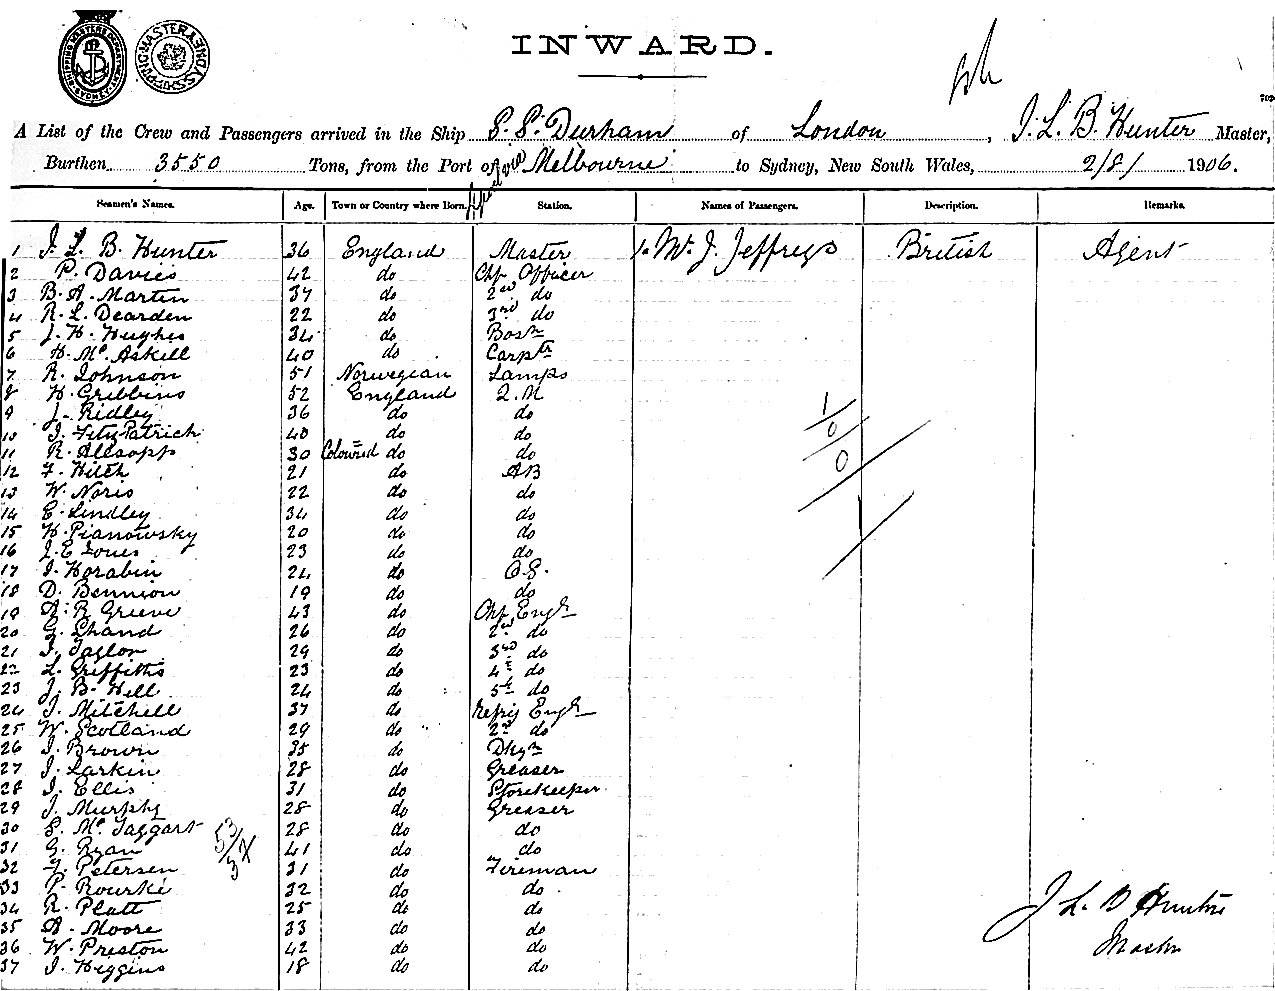 SHIPPING MASTERS DEPARTMENT SYDNEY
SHIPPING MASTER SYDNEY
INWARD.
A List of the Crew and Passengers arrived in the Ship S.S. Durham of London, J. L. B. Hunter Master,
Burthen 3550 Tons, from the Port of Melbourne to Sydney, New South Wales, 2/8/ 1906.
Seamen's Names. Age. Town or Country where Born. Station. Names of Passengers. Description. Remarks.
1 J. L. B. Hunter 36 England Master 1. Mr. J. Jeffreys British Agent
2 P. Davies 42 do Chf Officer
3 B. A. Martin 37 do 2nd do
4 R. L. Dearden 22 do 3rd do
5 J. H. Hughes 34 do Bosn
6 H. Mc Askill 40 do Carptr
7 R. Johnson 51 Norwegian Lamps
8 H. Gribbins 52 England Q.M
9 J. Ridley 36 do do
10 J. FitzPatrick 40 do do
11 R. Allsopp 30 Coloured do do
12 F. Hitch 21 do AB
13 W. Noris 22 do do
14 E. Lindley 34 do do
15 H. Pianowsky 20 do do
16 J. E Jones 23 do do
17 J. Horabin 24 do O.S.
18 D. Bennion 19 do do
19 A. R Greeve 43 do Chf Engr
20 G. Shand 26 do 2nd do
21 J. Taylor 29 do 3rd do
22 L. Griffiths 23 do 4th do
23 J. B. Hill 24 do 5th do
24 J. Mitchell 37 do Refrig Engr
25 W. Scotland 29 do 2nd do
26 J. Brown 35 do Dkyn
27 J. Larkin 28 do Greaser
28 J. Ellis 31 do Storekeeper
29 J. Murphy 28 do Greaser
30 S. Mc Taggart 28 do do
31 G. Ryan 41 do do
32 J. Petersen 31 do Fireman
33 P. Rourke 32 do do
34 R. Platt 25 do do
35 A. Moore 33 do do
36 W. Preston 42 do do
37 J. Higgins 18 do do
1/0/0
53/
J L B Hunter
Master